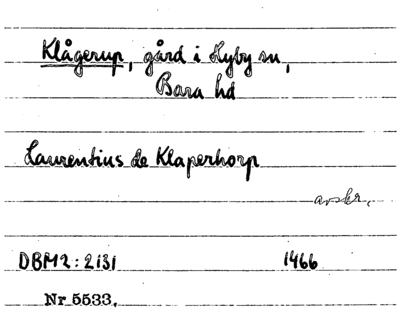 Klågerup, gård i Hyby sn,
Bara hd
Laurentius de Klaperhorp
avskr.
DBM2:2131 1466
Nr 5533.